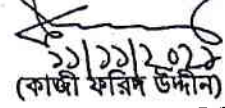 ১১|১১|২০২১
(কাজী ফরিদ উদ্দীন)